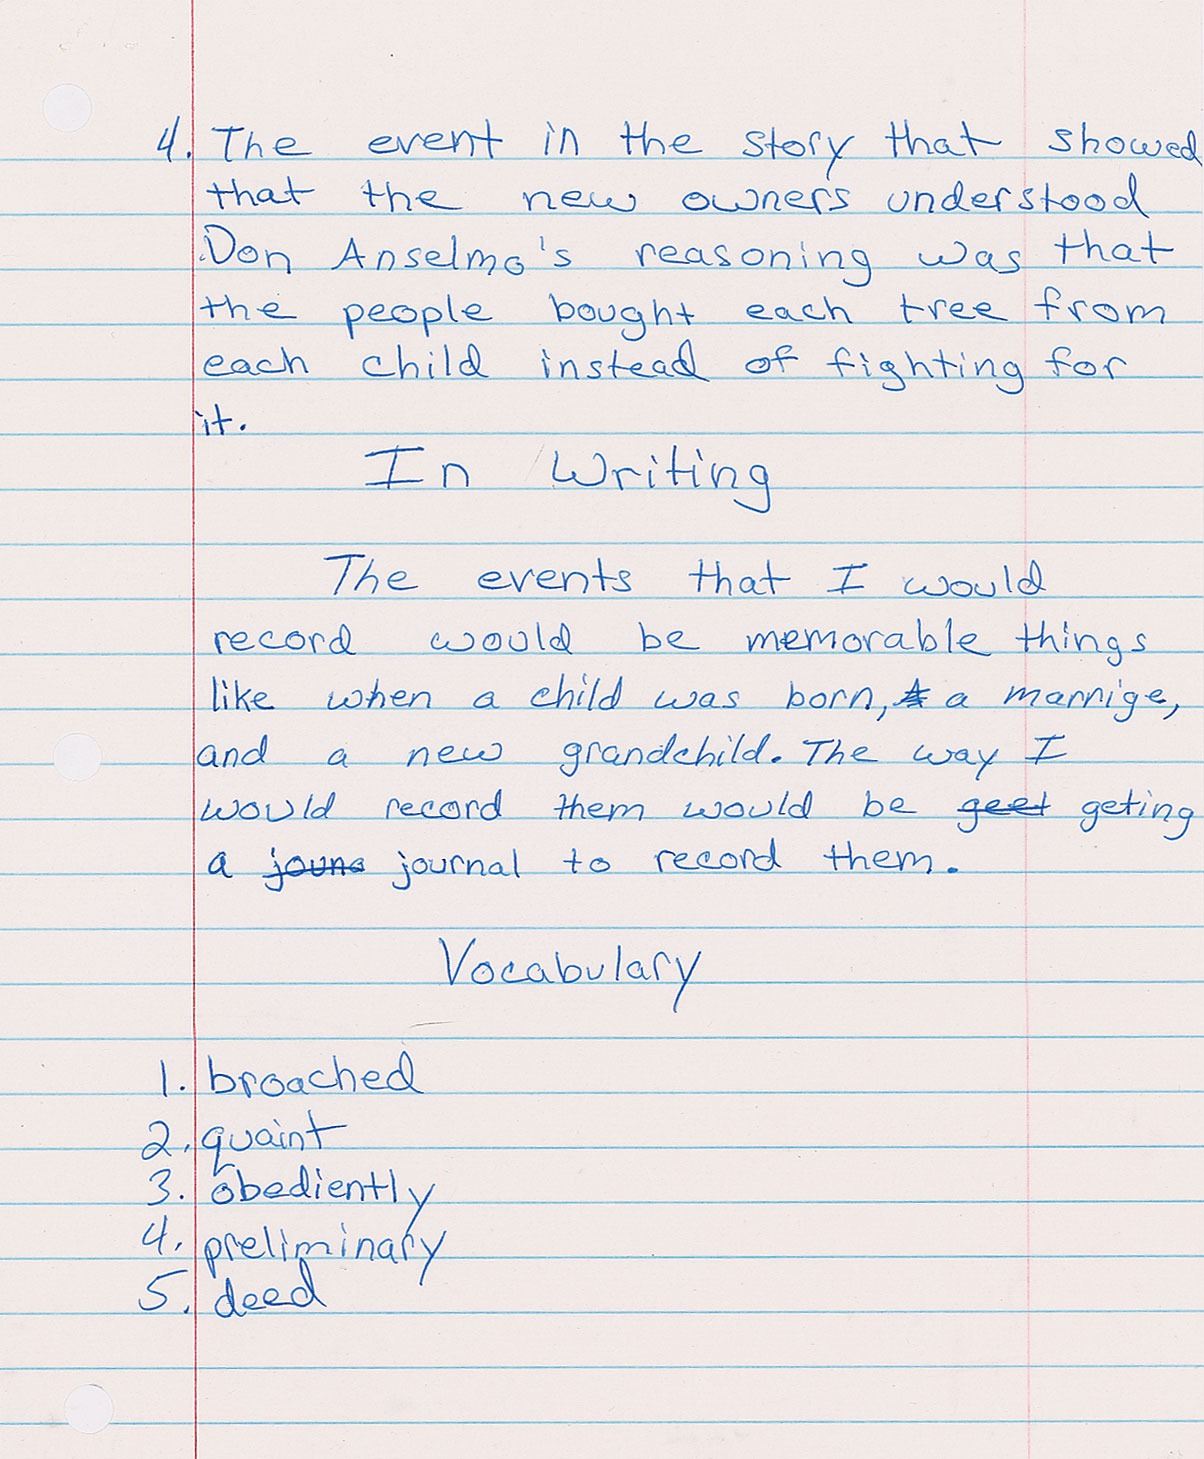 4. The event in the story that showed
that the new owners understood
Don Anselmo's reasoning was that
the people bought each tree from
each child instead of fighting for
it.
In Writing
The events that I would
record would be memorable things
like when a child was born, a marrige,
and a new grandchild. The way I
would record them would be geet geting
a jouna journal to record them.
Vocabulary
1. broached
2. quaint
3. obediently
4. preliminary
5. deed